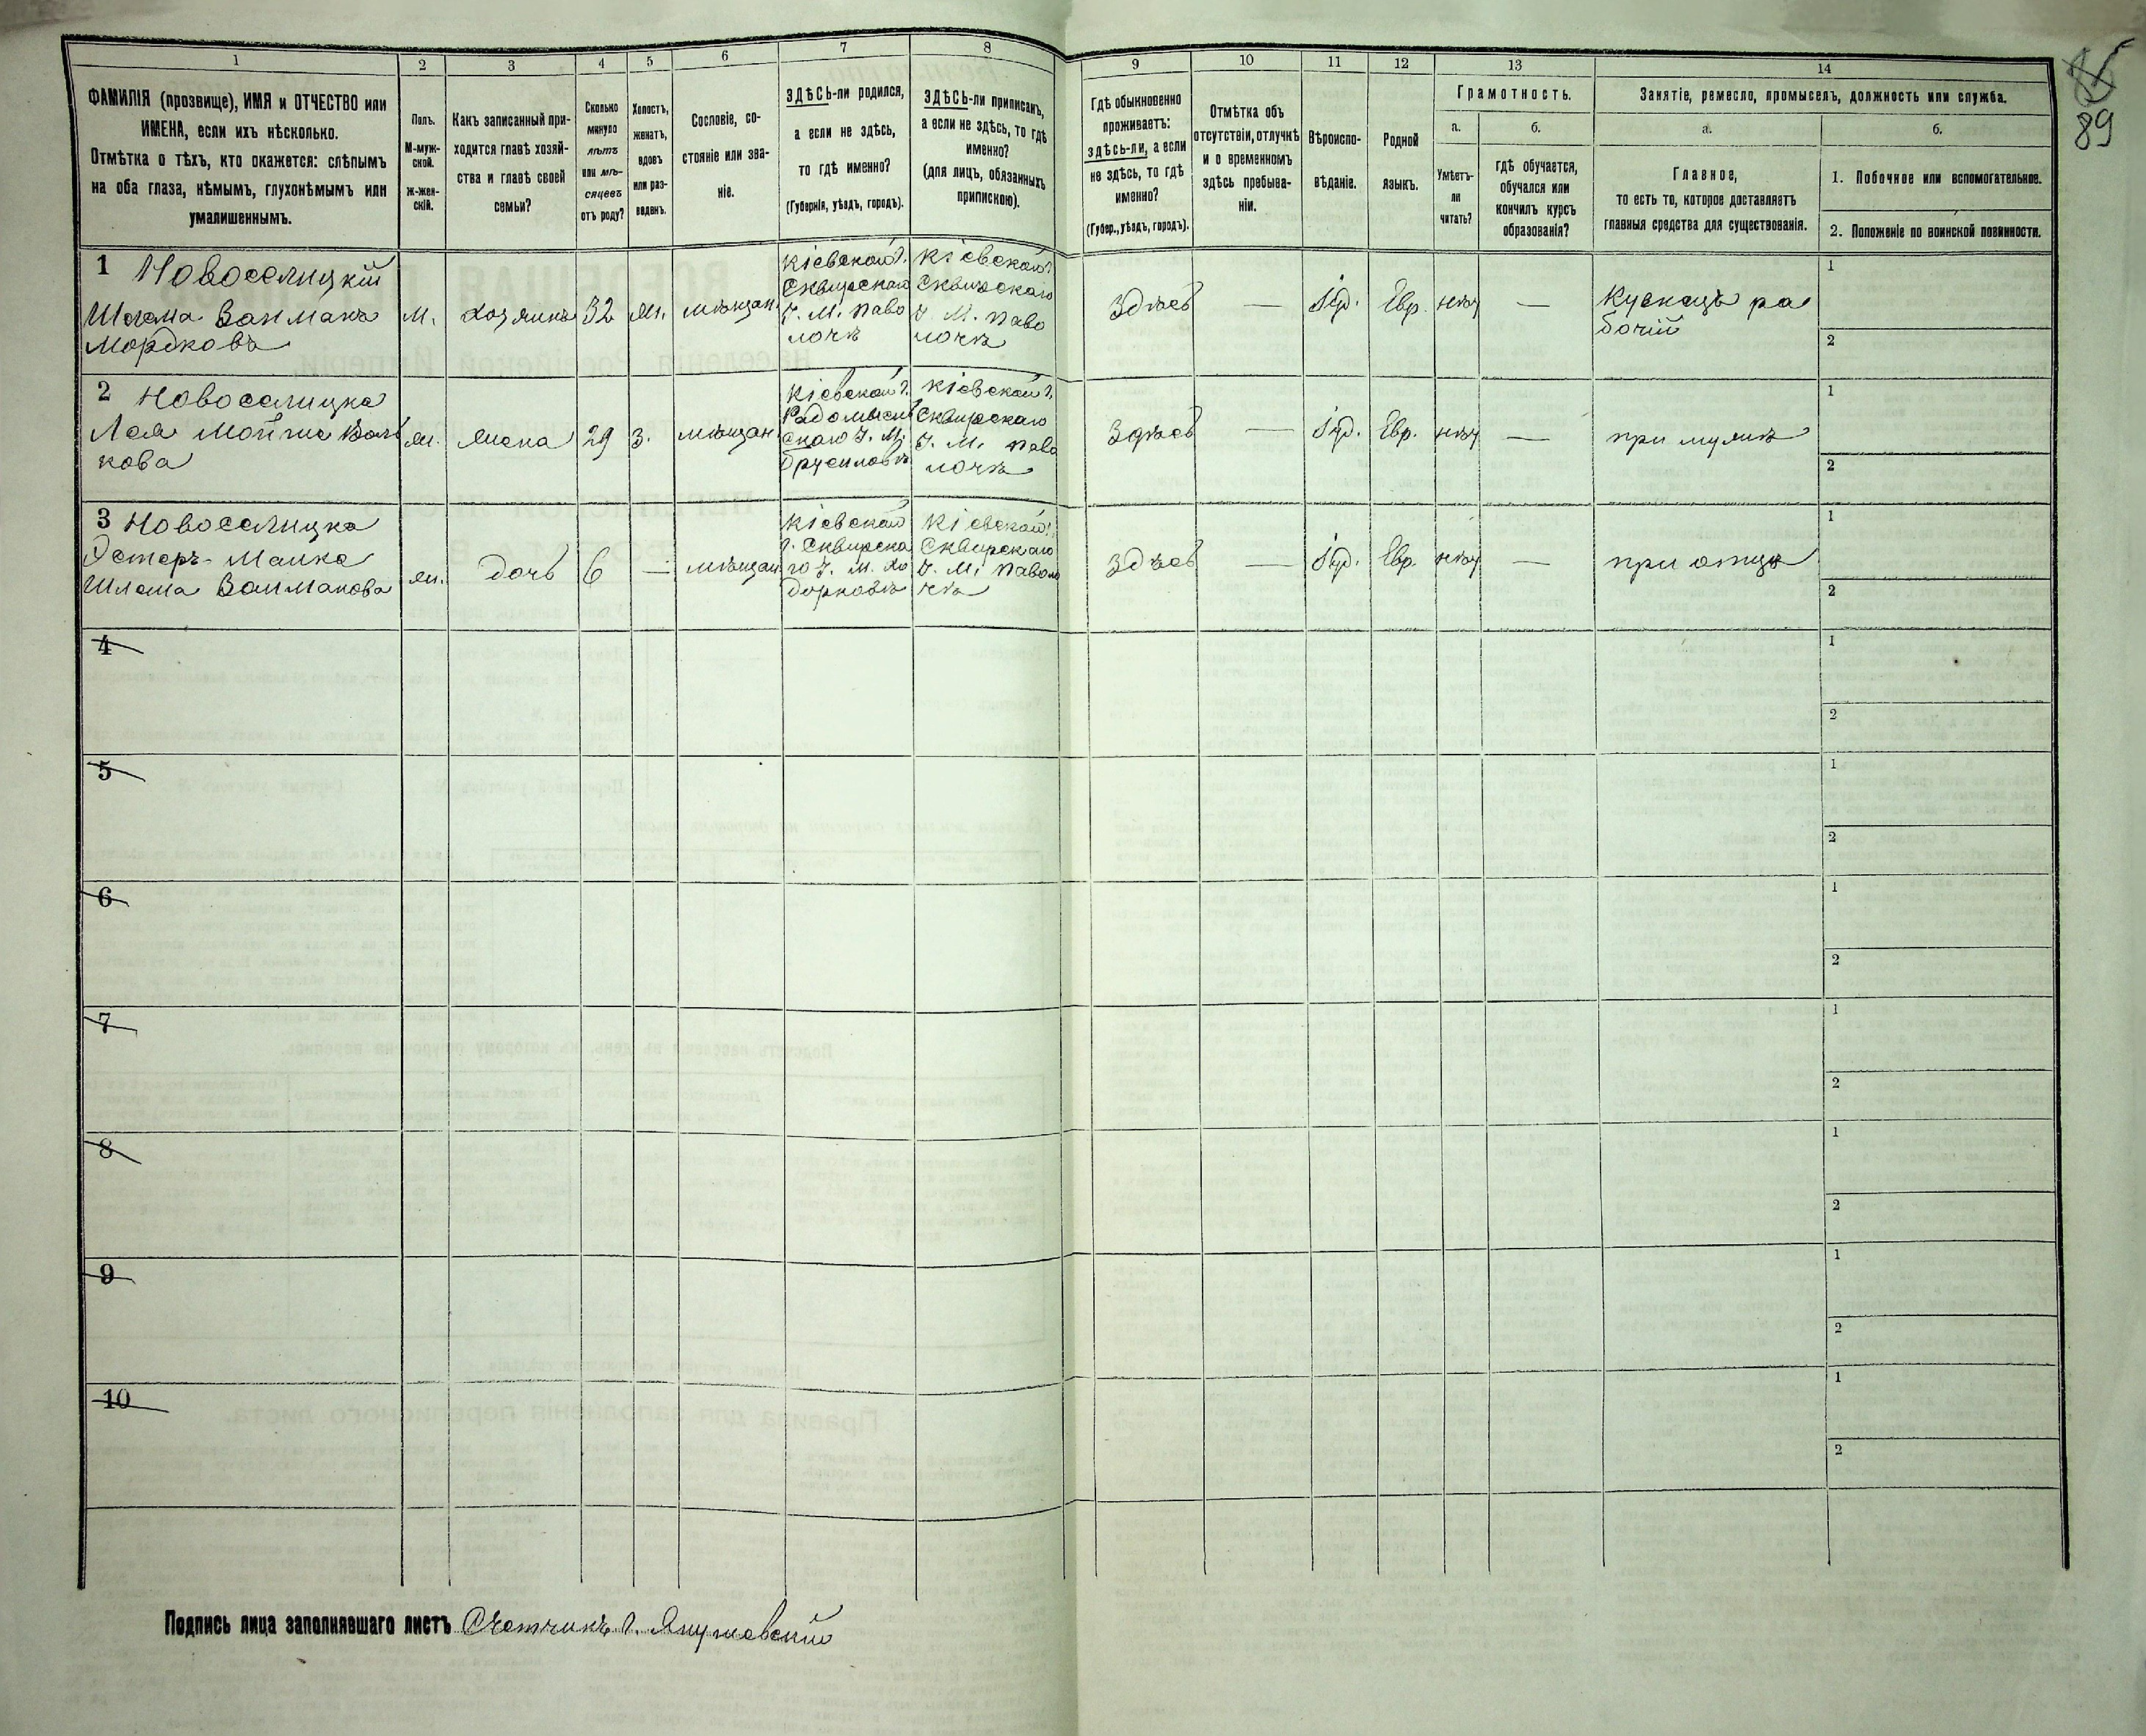 89
1
2
3
4
5
6
7
8
9
10
11
12
13
14
ФАМИЛІЯ (прозвище), ИМЯ и ОТЧЕСТВО или
ИМЕНА, если ихъ нѣсколько.
Отмѣтка о тѣхъ, кто окажется: слѣпымъ
на оба глаза, нѣмымъ, глухонѣмымъ или
умалишеннымъ.
Полъ.
М-муж-
ской.
Ж-жен-
скій.
Какъ записанный при-
ходится главѣ хозяй-
ства и главѣ своей
семьи?
Сколько
минуло
лѣтъ
или мѣ-
сяцевъ
отъ роду?
Холостъ,
женатъ,
вдовъ
или раз-
веденъ.
Сословіе, со-
стояніе или зва-
ніе.
ЗДѢСЬ-ли родился,
а если не здѣсь,
то гдѣ именно?
(Губернія, уѣздъ, городъ).
ЗДѢСЬ-ли приписанъ,
а если не здѣсь, то гдѣ
именно?
(для лицъ, обязанныхъ
припискою).
Гдѣ обыкновенно
проживаетъ:
здѣсь-ли, а если
не здѣсь, то гдѣ
именно?
(Губер., уѣздъ, городъ).
Отмѣтка объ
отсутствіи, отлучкѣ
и о временномъ
здѣсь пребыва-
ніи.
Вѣроиспо-
вѣданіе.
Родной
языкъ.
Грамотность.
а.
Умѣетъ-
ли
читать?
б.
гдѣ обучается,
обучался или
кончилъ курсъ
образованія?
Занятіе, ремесло, промыселъ, должность или служба.
а.
Главное,
то есть то, которое доставляетъ
главныя средства для существованія.
б.
1. Побочное или вспомогательное.
2. Положеніе по воинской повинности.
1 Новоселицкій
Шлема Залманъ
Мордковъ
М.
хозяинъ
32
ж.
мѣщан.
Кіевской г.
Сквирскаго
У. М. Паво
лочѣ
Кіевской г.
Сквирскаго
У. М. Паво
лочѣ
Здѣсь
—
Іуд.
Евр.
нѣт
—
Кузнецъ ра
бочій
1
2
2 Новоселицка
Лея Мойше Воль
кова
ж.
жена
29
З.
мѣщан.
Кіевской г.
Радомысль
скаго У. М.
Брусиловѣ
Кіевской г.
Сквирскаго
У. М. Паво
лочѣ
Здѣсь
—
Іуд.
Евр.
нѣт
—
при мужѣ
1
2
3 Новоселицка
Эстеръ-Малка
Шлема Залманова
ж.
дочь
6
—
мѣщан
Кіевской
г. Сквирска
го У. М. Хо
дорковѣ
Кіевской г.
Сквирскаго
У. М. Паволо
чѣ
Здѣсь
—
Іуд.
Евр.
нѣт
—
при отцѣ
1
2
4
1
2
5
1
2
6
1
2
7
1
2
8
1
2
9
1
2
10
1
2
Подпись лица заполнявшаго листъ Счетчикъ